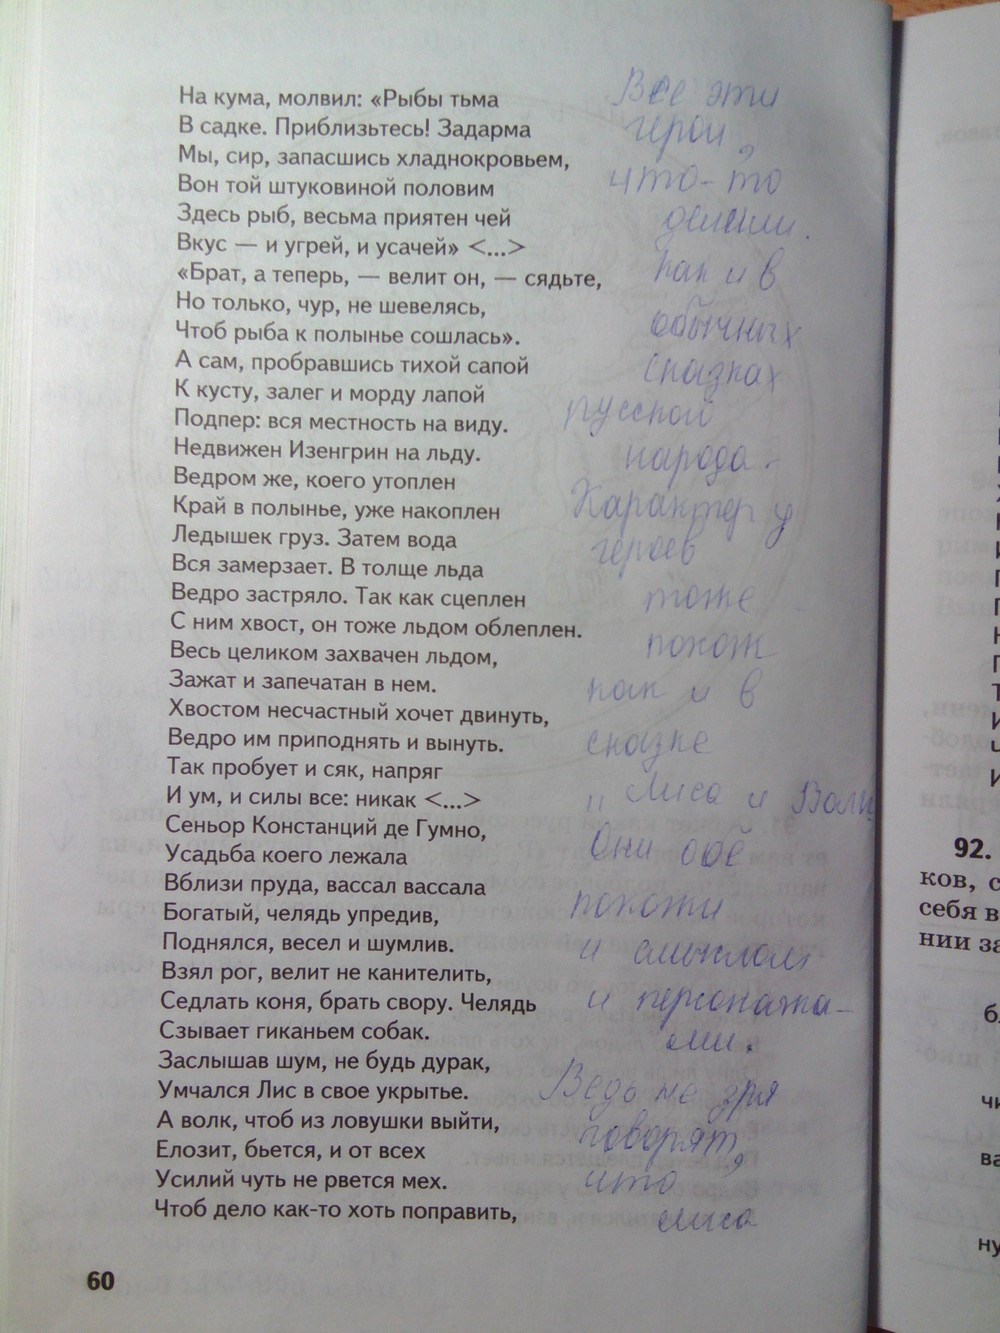 На кума, молвил: «Рыбы тьма
В садке. Приблизьтесь! Задарма
Мы, сир, запасшись хладнокровьем,
Вон той штуковиной половим
Здесь рыб, весьма приятен чей
Вкус — и угрей, и усачей» <...>
«Брат, а теперь, — велит он, — сядьте,
Но только, чур, не шевелясь,
Чтоб рыба к полынье сошлась».
А сам, пробравшись тихой сапой
К кусту, залег и морду лапой
Подпер: вся местность на виду.
Недвижен Изенгрин на льду.
Ведром же, коего утоплен
Край в полынье, уже накоплен
Ледышек груз. Затем вода
Вся замерзает. В толще льда
Ведро застряло. Так как сцеплен
С ним хвост, он тоже льдом облеплен.
Весь целиком захвачен льдом,
Зажат и запечатан в нем.
Хвостом несчастный хочет двинуть,
Ведро им приподнять и вынуть.
Так пробует и сяк, напряг
И ум, и силы все: никак <...>
Сеньор Констанций де Гумно,
Усадьба коего лежала
Вблизи пруда, вассал вассала
Богатый, челядь упредив,
Поднялся, весел и шумлив.
Взял рог, велит не канителить,
Седлать коня, брать свору. Челядь
Сзывает гиканьем собак.
Заслышав шум, не будь дурак,
Умчался Лис в свое укрытье.
А волк, чтоб из ловушки выйти,
Елозит, бьется, и от всех
Усилий чуть не рвется мех.
Чтоб дело как-то хоть поправить,
60
Все эти
герои,
что-то
делили.
как и в
обычных
сказках
русской
народа.
Характер у
героев
тоже
похож
как и в
сказке
" Лиса и Волк
Они обе
похожи
и смыслом
и персонажа-
ми.
Ведь не зря
говорят,
что
лиса
92.
ков, с
себя в
нии за
чи
ва
ну